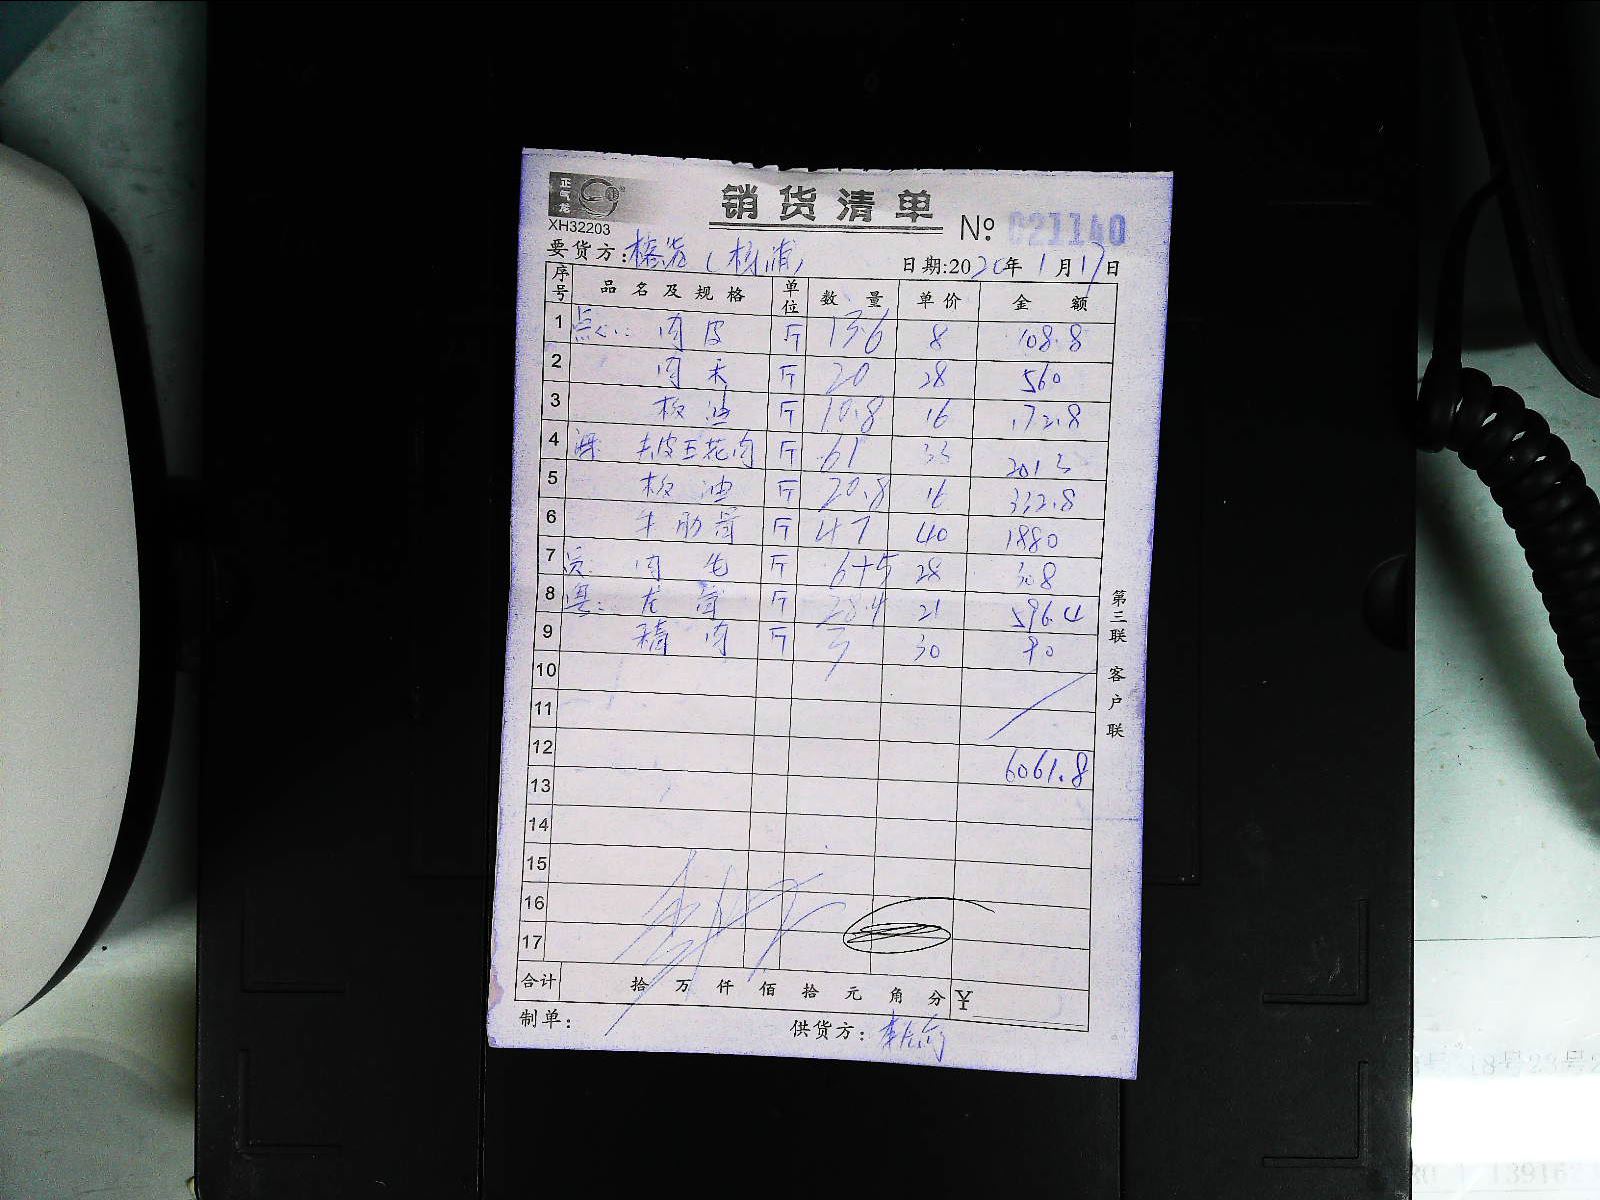 正气龙
销货清单
XH32203
№ 021140
要货方:
日期:2020年1月17日
序号 品名及规格 单位 数量 单价 金额
1 点心: 肉皮 斤 13.6 8 108.8
2 肉夫 斤 20 28 560
3 板油 斤 10.8 16 172.8
4 去皮五花肉 斤 61 33 2013
5 板油 斤 20.8 16 332.8
6 牛肋骨 斤 47 40 1880
7 肉 斤 6+5 28 308
8 龙骨 斤 28.4 21 596.4
9 精肉 斤 3 30 90
10
11
12 6061.8
13
14
15
16
17
合计 拾 万 仟 佰 拾 元 角 分 ¥
制单: 供货方:
第三联 客户联